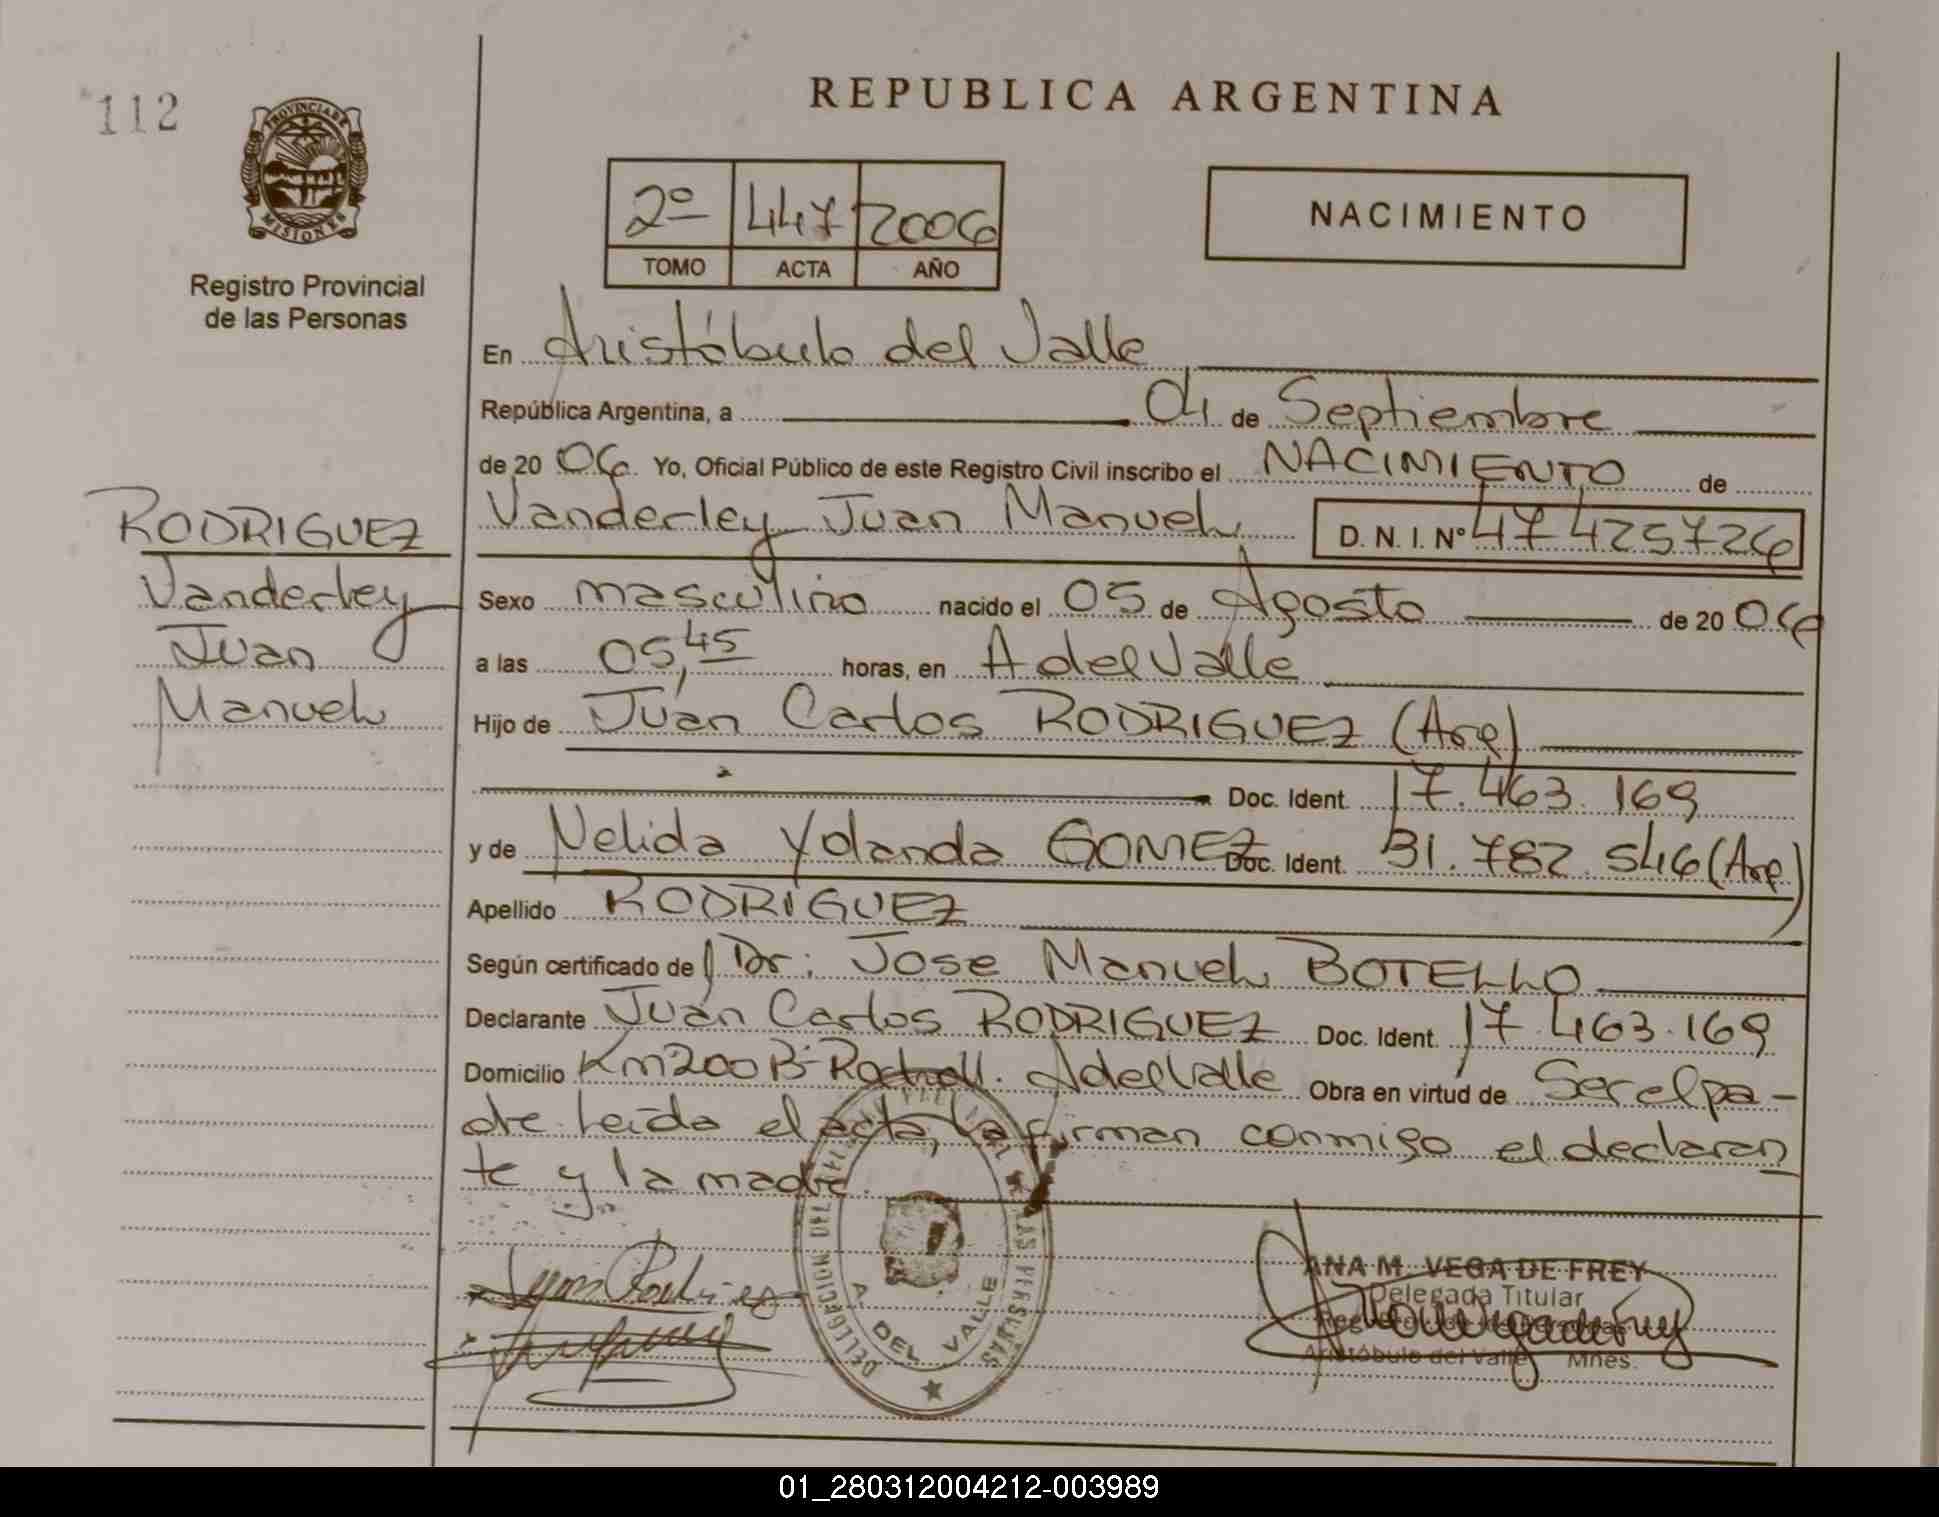 112
PROVINCIA DE
MISIONES
Registro Provincial
de las Personas
RODRIGUEZ
Vanderley
Juan
Manuel
REPUBLICA ARGENTINA
2º 447 2006
TOMO ACTA AÑO
NACIMIENTO
En Aristóbulo del Valle
República Argentina, a 04 de Septiembre
de 20 06. Yo, Oficial Público de este Registro Civil inscribo el NACIMIENTO de
Vanderley Juan Manuel D. N. I. Nº 47425726
Sexo masculino nacido el 05 de Agosto de 20 06
a las 05,45 horas, en A del Valle
Hijo de Juan Carlos RODRIGUEZ (Arg)
Doc. Ident. 17.463.169
y de Nelida Yolanda GOMEZ Doc. Ident. 31.782.546 (Arg)
Apellido RODRIGUEZ
Según certificado de Dr: Jose Manuel BOTELLO
Declarante Juan Carlos RODRIGUEZ Doc. Ident. 17.463.169
Domicilio Km200 Bº A del Valle Obra en virtud de Ser el pa-
dre. Leída el acta, la firman conmigo el declaran
te y la madre.
A. DEL VALLE
ANA M. VEGA DE FREY
Delegada Titular
Aristóbulo del Valle Mnes.
01_280312004212-003989